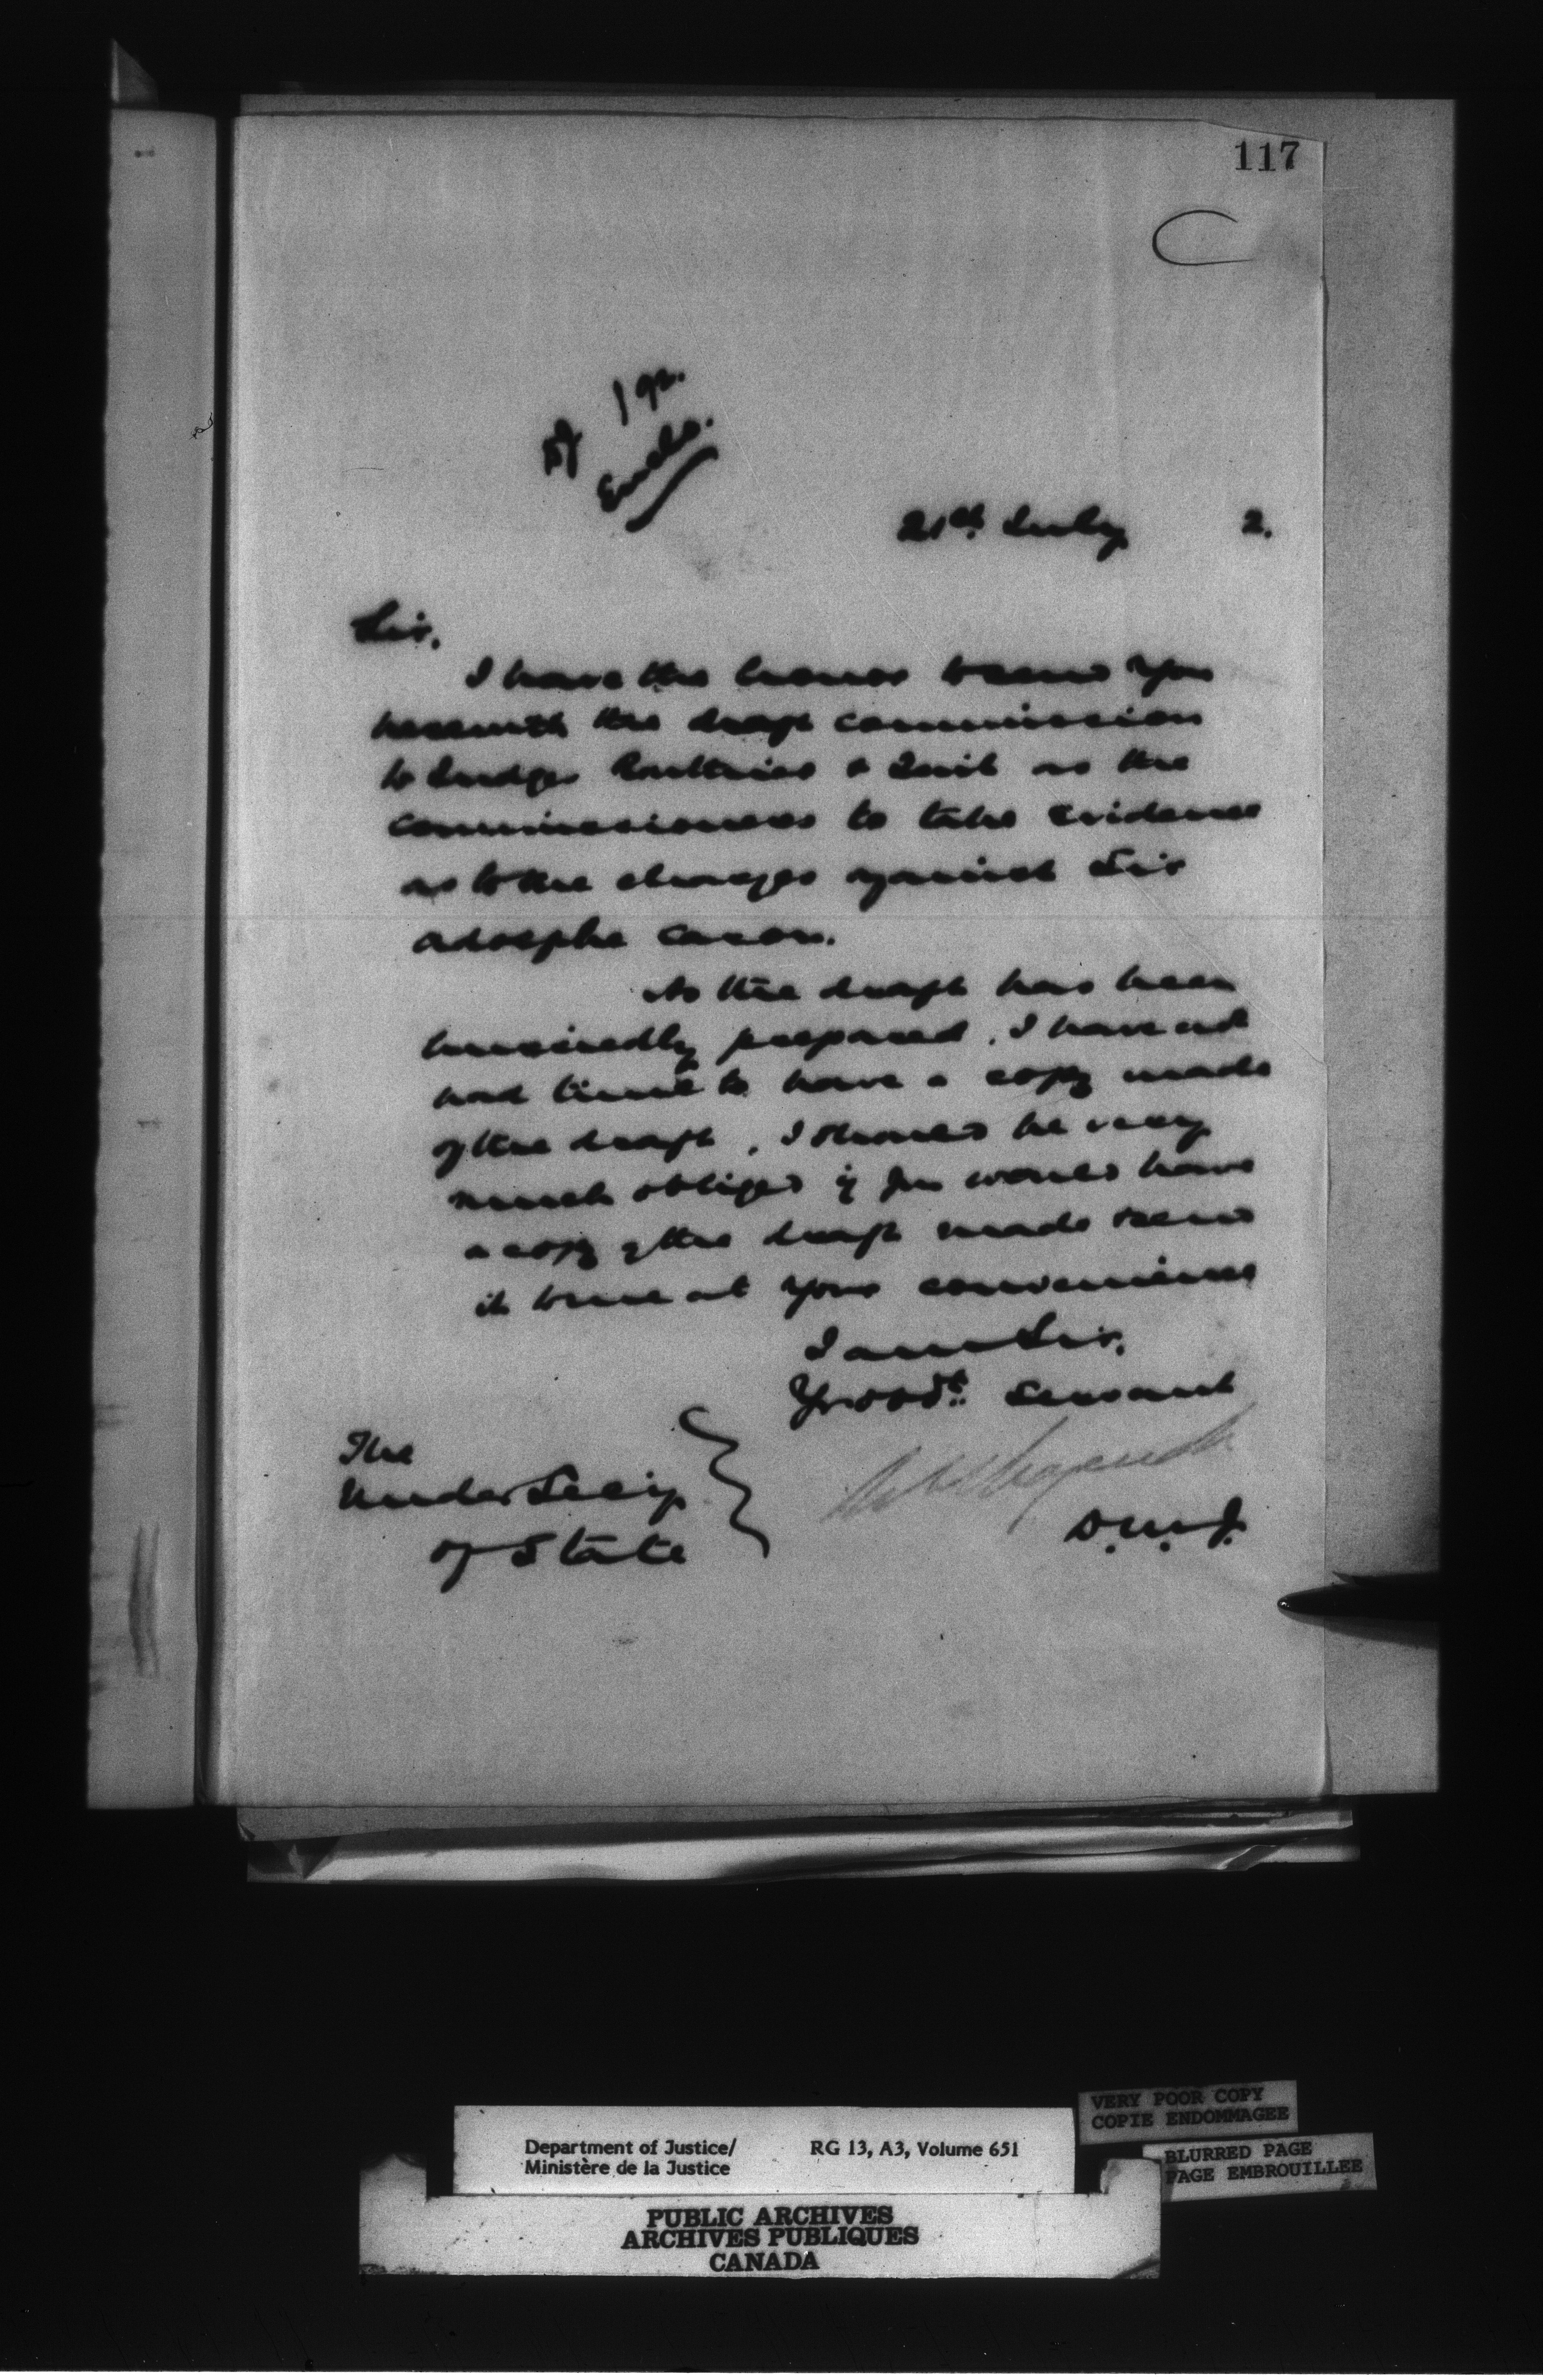 117
Encls.
21st July 2.
Sir,
I have the honor to send you
herewith the draft commission
to Judges Routhier & Tait as the
commissioners to take evidence
as to the charges against Sir
Adolphe Caron.
As the draft has been
hurriedly prepared, I have not
had time to have a copy made
of the draft, I should be very
much obliged if you would have
a copy of the draft made & send
it to me at your convenience
I am Sir,
Yr obdt. Servant
D.M.J.
The
Under Secy
of State
VERY POOR COPY
COPIE ENDOMMAGEE
BLURRED PAGE
PAGE EMBROUILLEE
Department of Justice/ RG 13, A3, Volume 651
Ministère de la Justice
PUBLIC ARCHIVES
ARCHIVES PUBLIQUES
CANADA